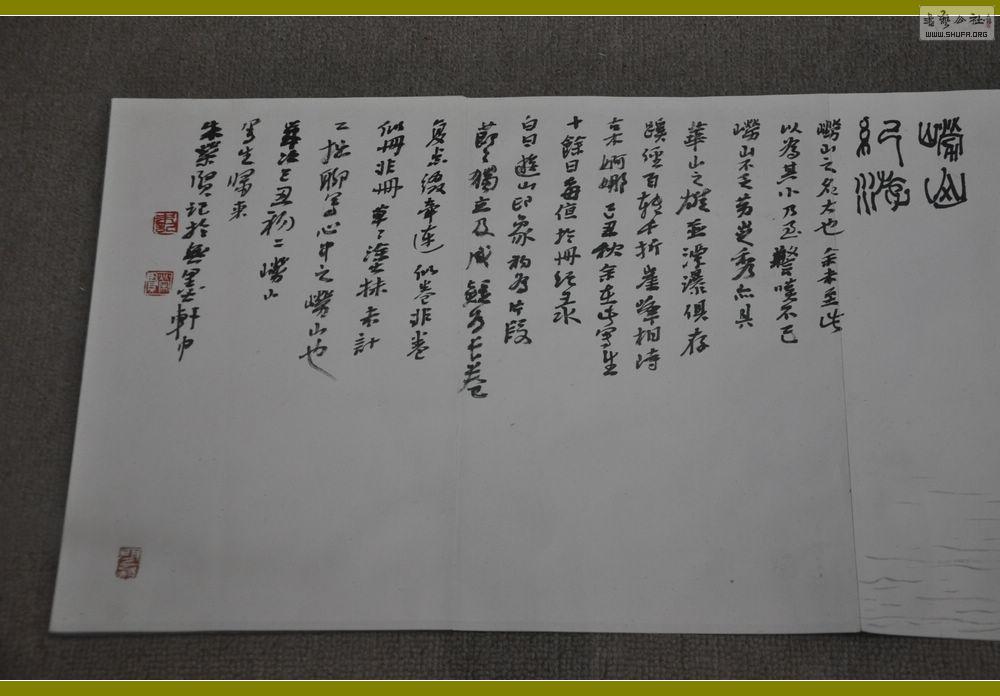 嶗山
紀游
嶗山之名大也余未至此
以為其小乃至驚嘆不已
嶗山不乏黃岳秀亦具
華山之雄並潭瀑俱存
蹊徑百轉千折崖峰相峙
古木婀娜己丑秋余在此寫生
十餘日每值於冊紀录
白日遊山印象初為片段
節節獨立及成經為長卷
復点綴牽連似卷非卷
似冊非冊草草塗抹未計
工拙聊寫心中之嶗山也
己丑初二嶗山
寫生歸來
朱榮賢記於無墨軒中
書藝公社
WWW.SHUFA.ORG